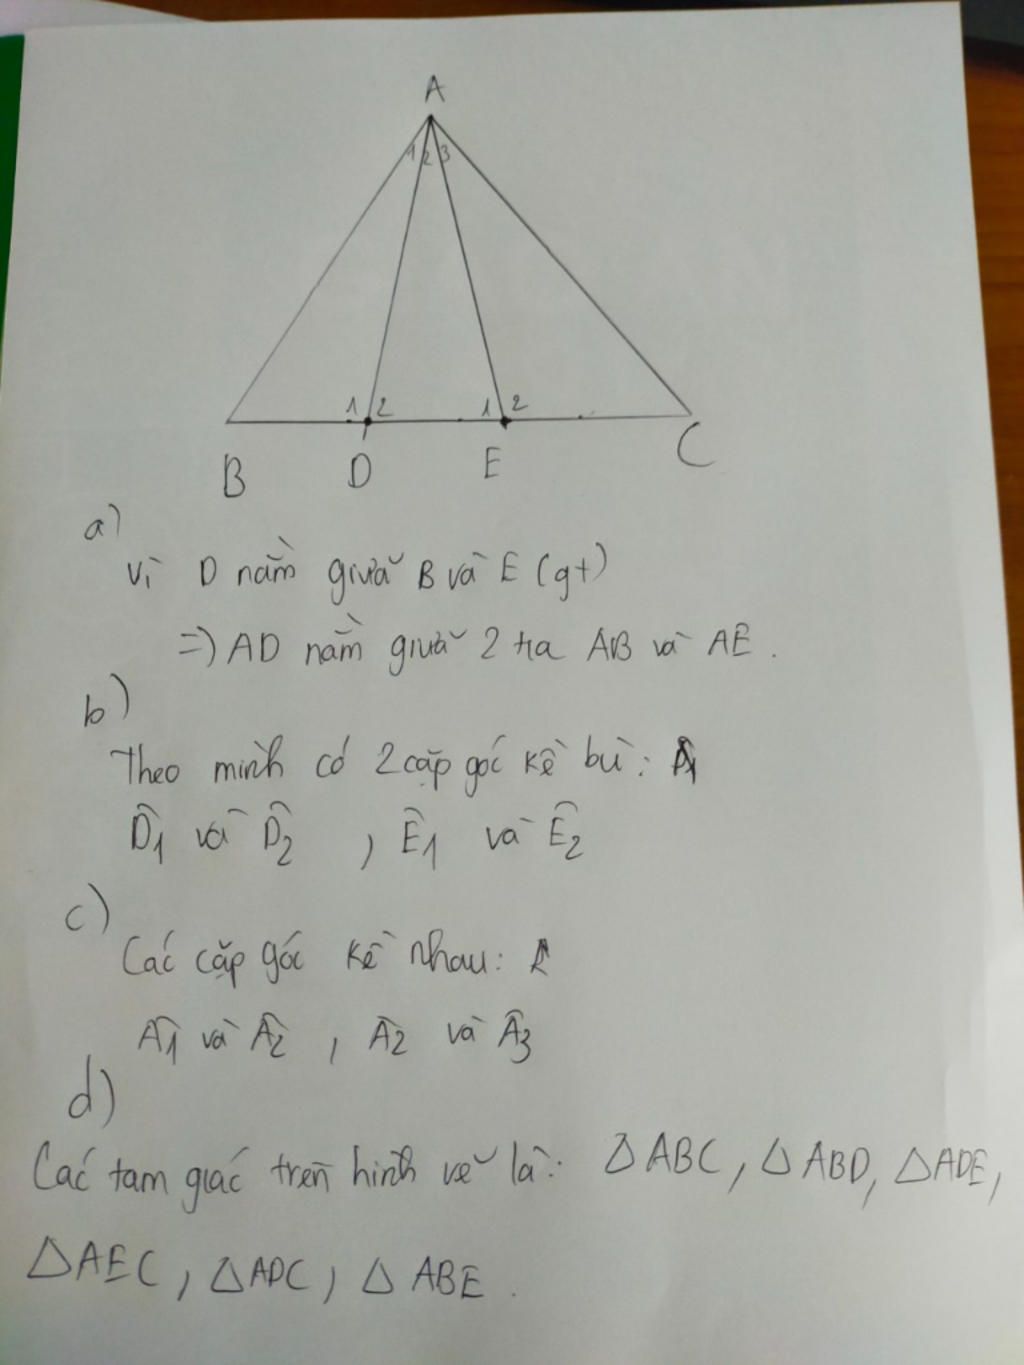 A
1 2 3
1 2 1 2
B D E C
a)
Vì D nằm giữa B và E (gt)
=) AD nằm giữa 2 tia AB và AE.
b)
Theo mình có 2 cặp góc kề bù:
D̂1 và D̂2 , Ê1 và Ê2
c)
Các cặp góc kề nhau:
Â1 và Â2 , Â2 và Â3
d)
Các tam giác trên hình vẽ là: △ABC, △ABD, △ADE,
△AEC, △ADC, △ABE.